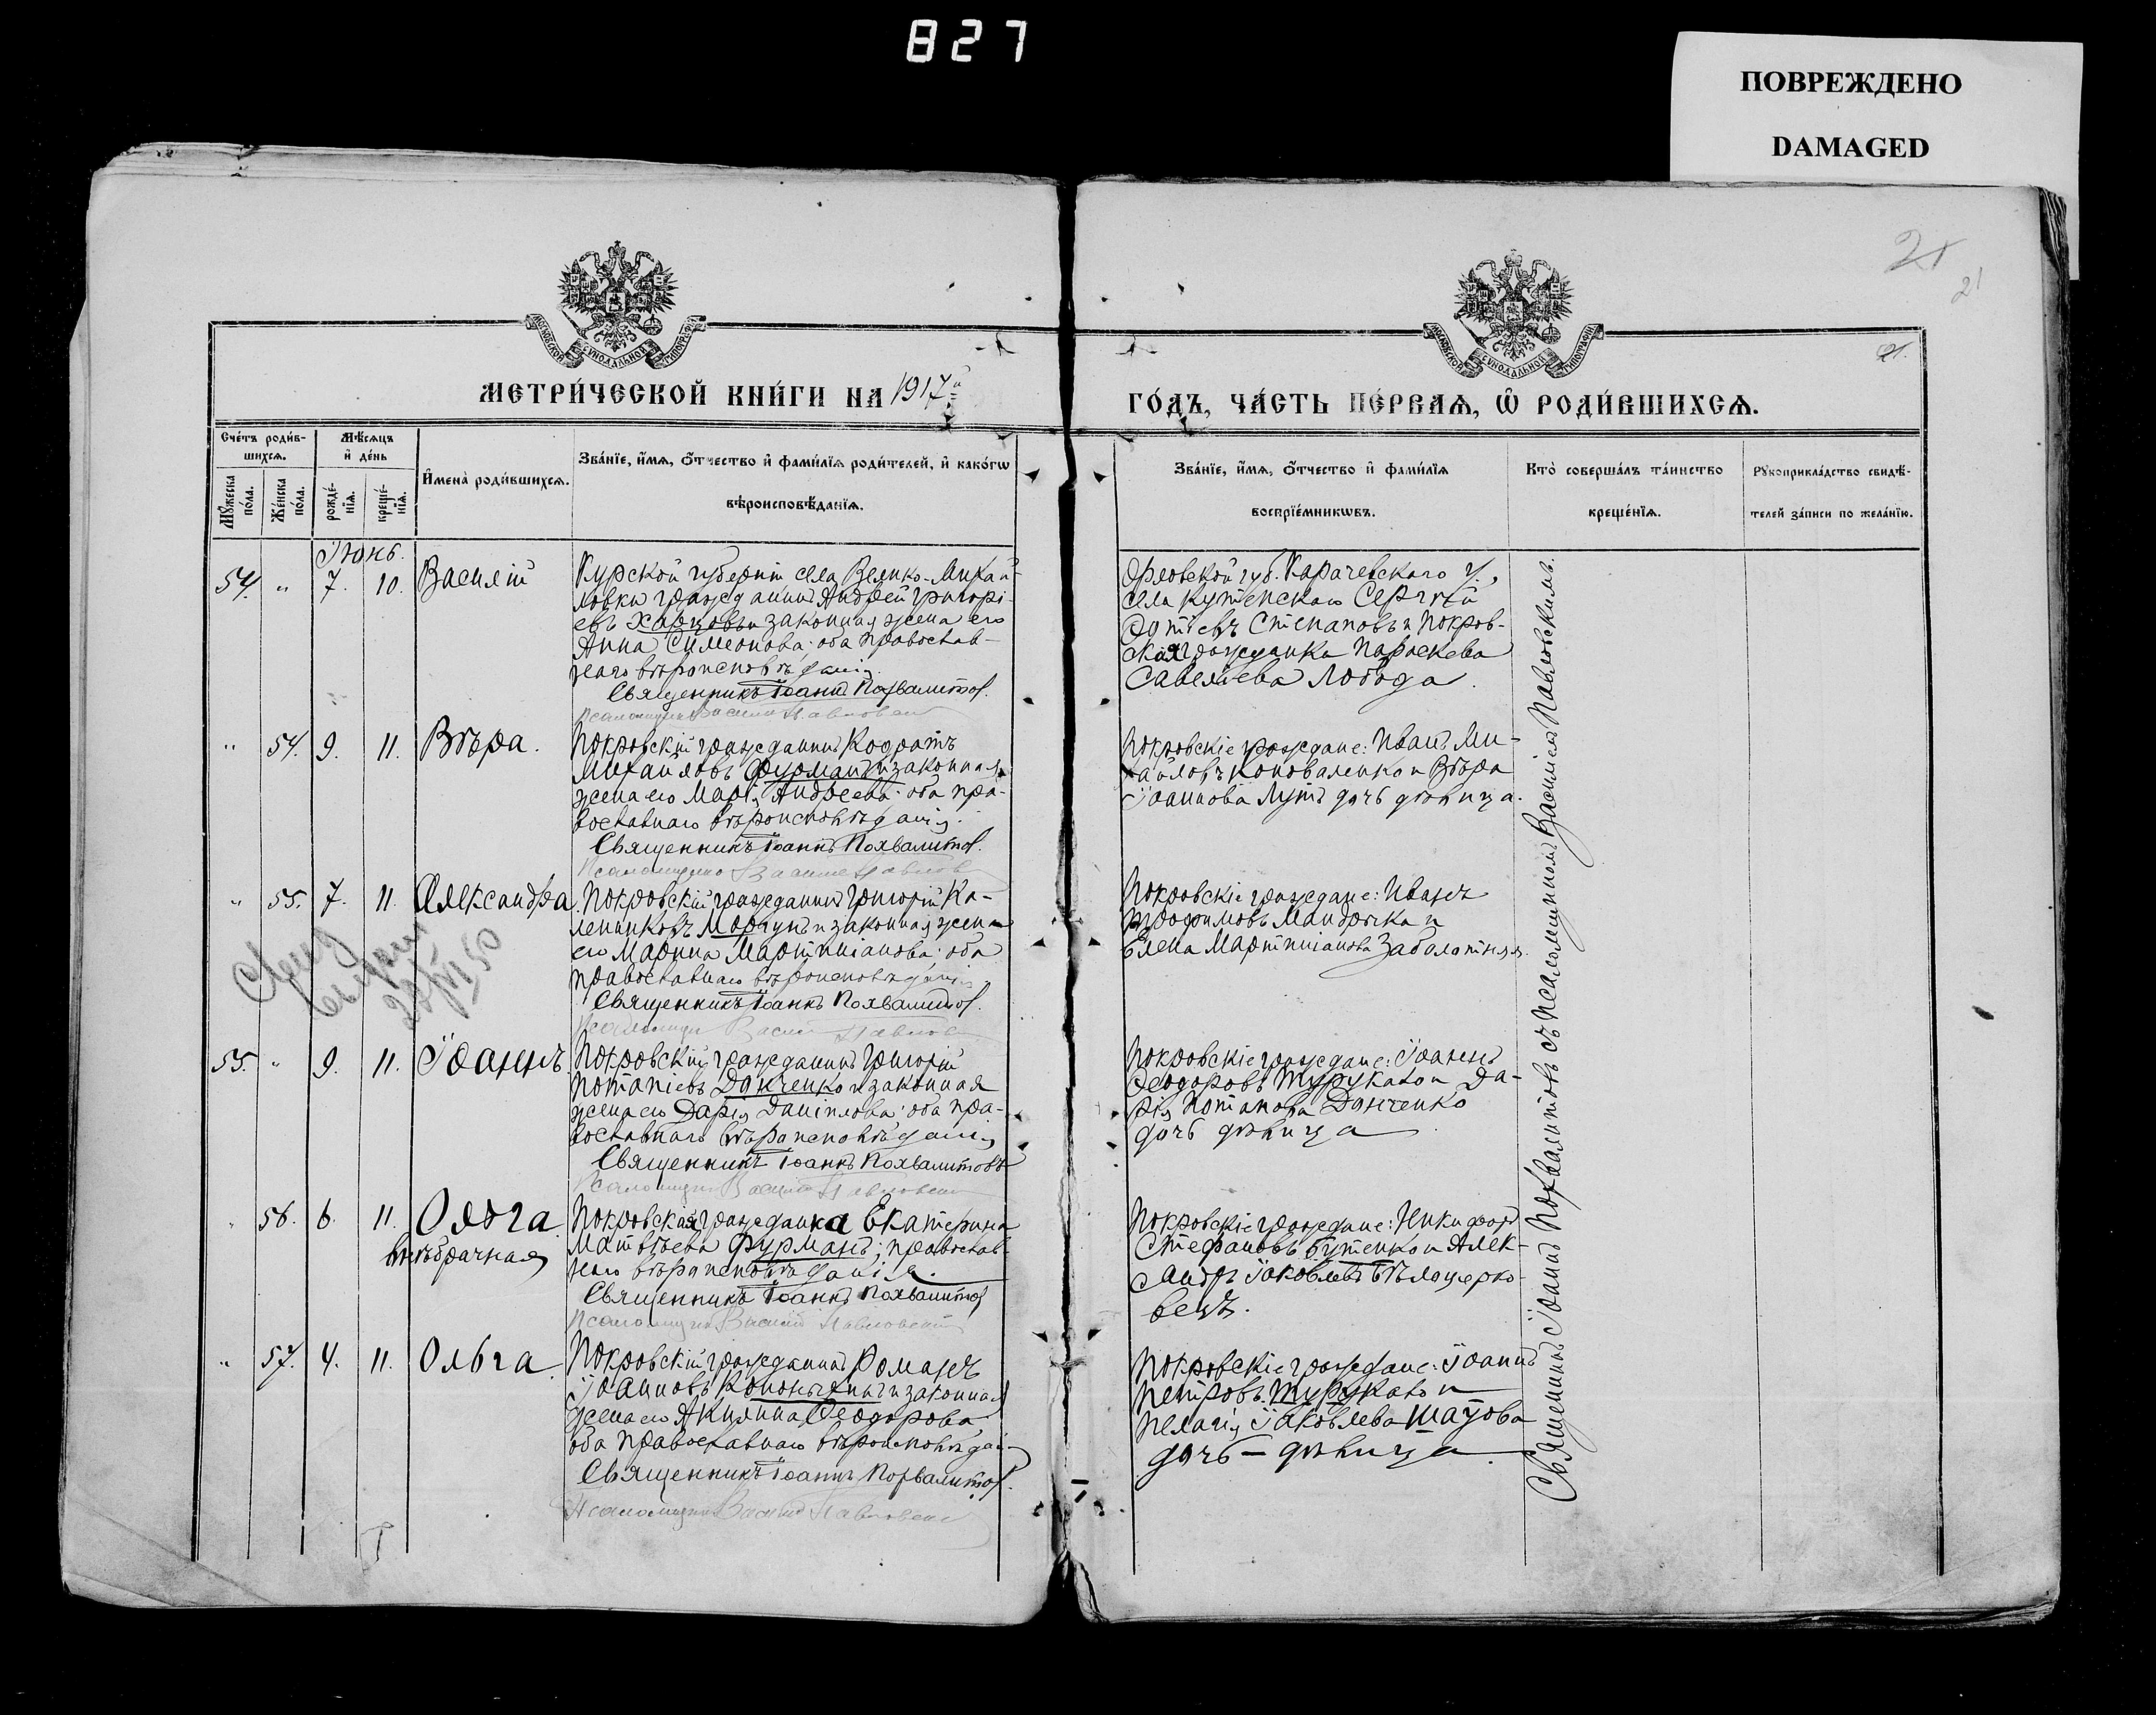 827
ПОВРЕЖДЕНО
DAMAGED
21
21
21.
МОСКОВСКОЙ СѴНОДАЛЬНОЙ ТИПОГРАФІИ
МОСКОВСКОЙ СѴНОДАЛЬНОЙ ТИПОГРАФІИ
МЕТРИ́ЧЕСКОЙ КНИ́ГИ НА 1917й
ГО́ДЪ, ЧА́СТЬ ПЕ́РВАѦ, Ѡ РОДИ́ВШИХСѦ.
Сче́тъ роди́в-
шихсѧ.
Мꙋ́жеска по́ла.
Же́нска по́ла.
Мѣ́сѧцъ
и҆ де́нь
рожде́-
нїѧ.
креще́-
нїѧ.
И҆мена̀ роди́вшихсѧ.
Зва́нїе, и҆́мѧ, ѻ҆́тчество и҆ фами́лїѧ роди́телей, и҆ како́гѡ
вѣроисповѣ́данїѧ.
Зва́нїе, и҆́мѧ, ѻ҆́тчество и҆ фами́лїѧ
воспрїе́мникѡвъ.
Кто̀ соверша́лъ та́инство
креще́нїѧ.
Рꙋкоприкла́дство свидѣ́-
телей за́писи по жела́нїю.
Іюнь.
54. " 7. 10. Василій
Курской губерніи села Велико-Михай-
ловки гражданинъ Андрей Григорі-
евъ Харцовъ и законная жена его
Анна Симеонова; оба православ-
наго вѣроисповѣданія.
Священникъ Іоаннъ Похвалитов.
Псаломщикъ Василій Павловскій
Орловской губ. Карачевскаго у.,
села Кутепскаго Сергѣй
Фотіевъ Степановъ и покров-
ская гражданка Параскева
Савельева Лобода.
" 54. 9. 11. Вѣра.
Покровскій гражданинъ Кодратъ
Михайловъ Фурманъ и законная
жена его Марія Андреева; оба пра-
вославнаго вѣроисповѣданія.
Священникъ Іоаннъ Похвалитов.
Псаломщикъ Василій Павловскій
Покровскіе граждане: Иванъ Ми-
хайловъ Коноваленко и Вѣра
Іоаннова Лутъ дочь дѣвица.
" 55. 7. 11. Александра.
Покровскій гражданинъ Григорій Ка-
лениковъ Моргунъ и законная жена
его Марина Мартиніанова; оба
православнаго вѣроисповѣданія
Священникъ Іоаннъ Похвалитов.
Псаломщикъ Василій Павловскій
Покровскіе граждане: Иванъ
Трофимовъ Мандрыка и
Елена Мартиніанова Заболотняя.
55. " 9. 11. Іоаннъ.
Покровскій гражданинъ Григорій
Потапіевъ Данченко и законная
жена его Дарія Даніилова; оба пра-
вославнаго вѣроисповѣданія
Священникъ Іоаннъ Похвалитовъ
Псаломщикъ Василій Павловскій
Покровскіе граждане: Іоаннъ
Феодоровъ Турукало и Да-
рія Потапова Данченко
дочь дѣвица.
" 56. 6. 11. Ольга
внѣбрачная
Покровская гражданка Екатерина
Матвѣева Фурманъ; православ-
наго вѣроисповѣданія.
Священникъ Іоаннъ Похвалитов
Псаломщикъ Василій Павловскій
Покровскіе граждане: Никифоръ
Стефановъ Бутенко и Алек-
сандръ Іаковлевъ Бѣлоцерко-
вецъ.
" 57. 4. 11. Ольга.
Покровскій гражданинъ Романъ
Іоанновъ Кононыхинъ и законная
жена его Акилина Феодорова
оба православнаго вѣроисповѣдан-
Священникъ Іоаннъ Похвалитов.
Псаломщикъ Василій Павловскій
Покровскіе граждане: Іоаннъ
Петровъ Турукало и
Пелагія Іаковлева Шатова
дочь – дѣвица.
Священникъ Іоаннъ Похвалитовъ съ псаломщикомъ Василіемъ Павловскимъ.